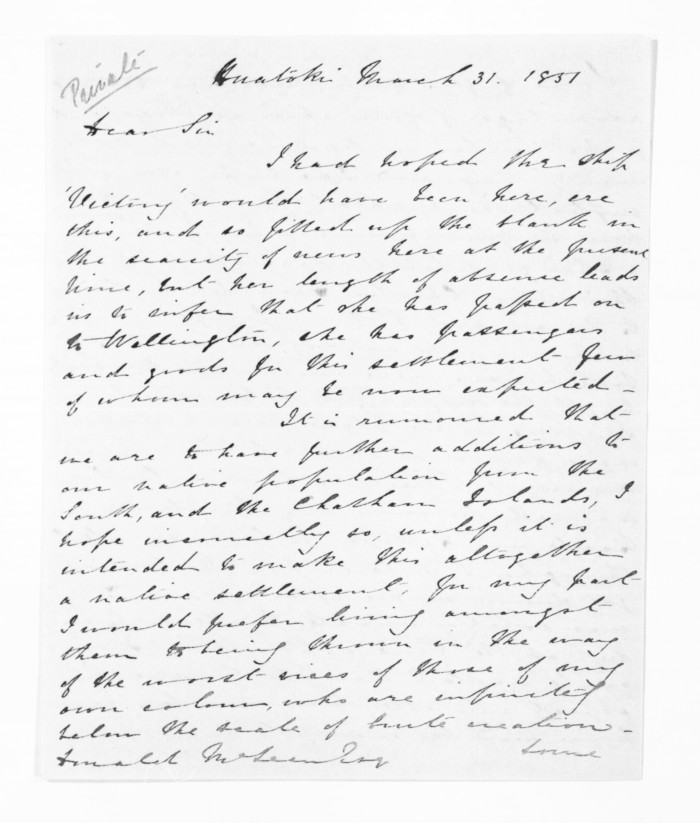 Private
Huatoki March 31. 1851
Dear Sir
I had hoped the ship
'Victory' would have been here, ere
this, and so filled up the blank in
the scarcity of news here at the present
time, but her length of absence leads
us to infer that she has passed on
to Wellington, she has passengers
and goods for this settlement few
of whom may be now expected -
It is rumoured that
we are to have further additions to
our native population from the
South, and the Chatham Islands, I
hope incorrectly so, unless it is
intended to make this altogether
a native settlement, for my part
I would prefer living amongst
them to being thrown in the way
of the worst vices of those of my
own colour, who are infinitely
below the scale of brute creation -
Donald McLean Esq
some